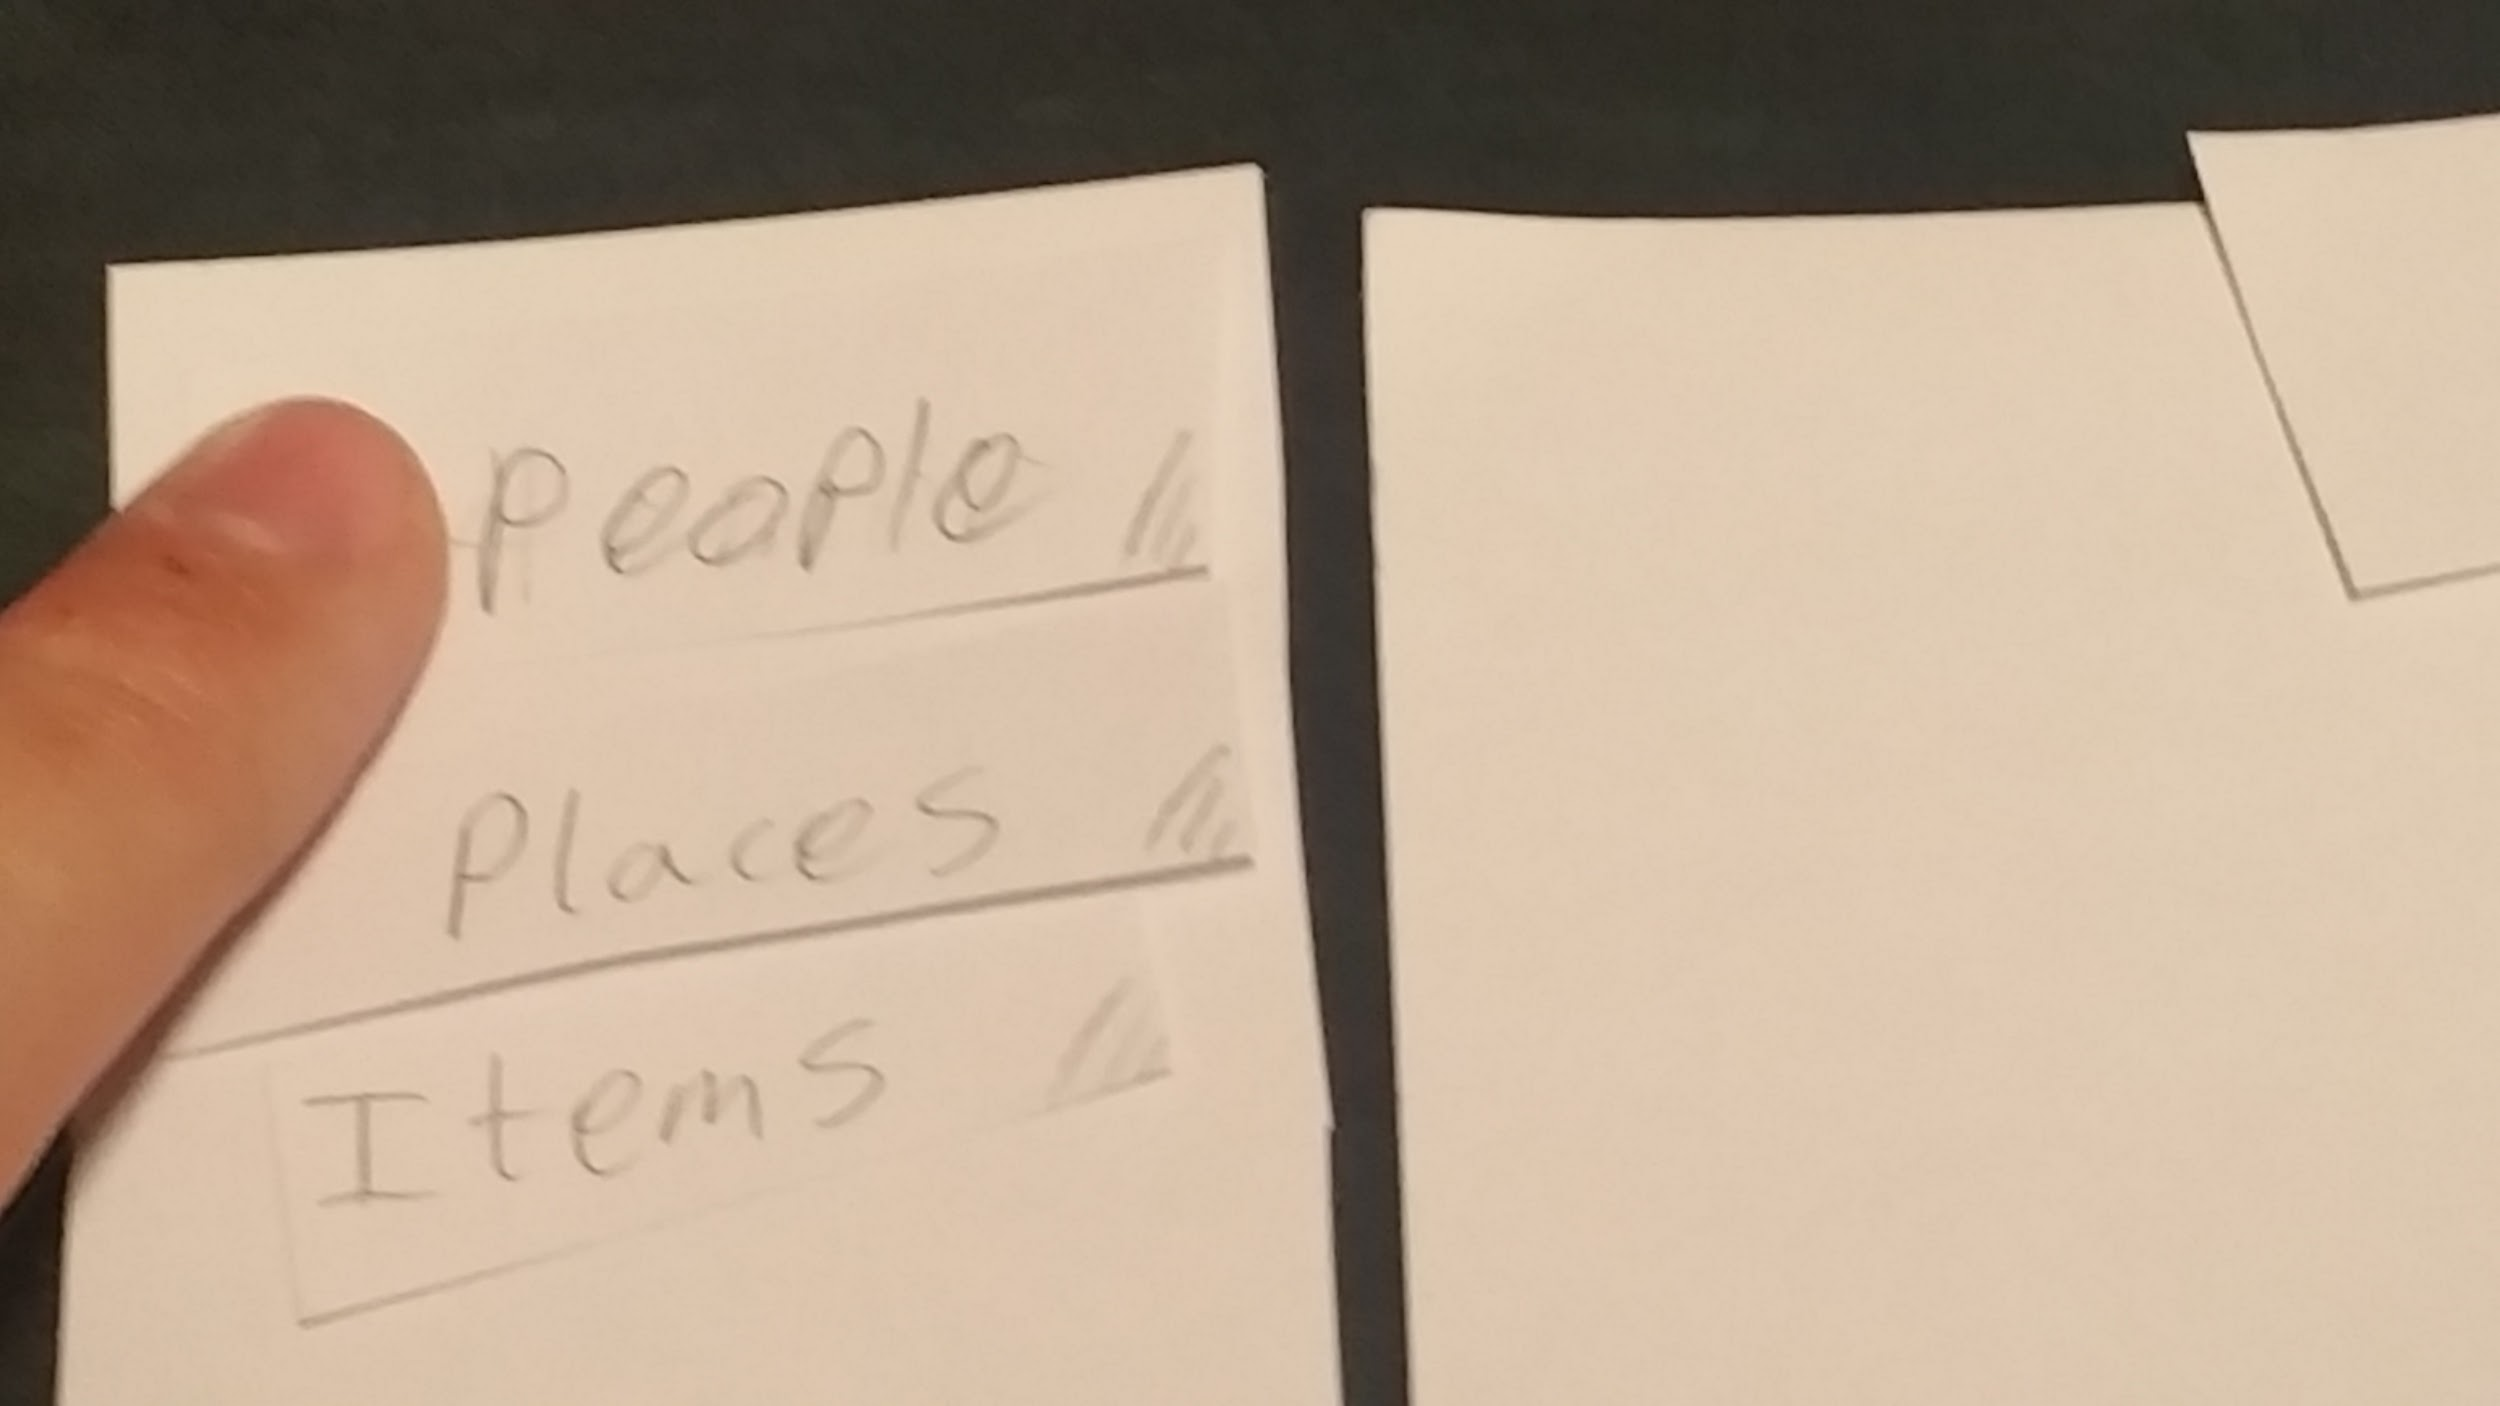 People
Places
Items